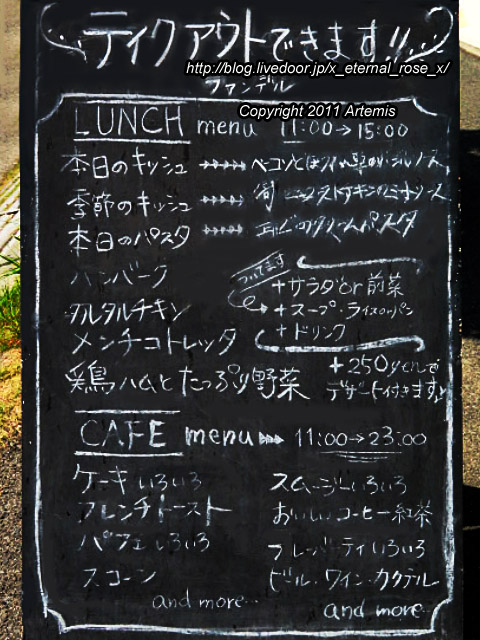 ティクアウトできます!!
http://blog.livedoor.jp/x_eternal_rose_x/
ファンデル
Copyright 2011 Artemis
LUNCH menu 11:00→15:00
本日のキッシュ
季節のキッシュ
本日のパスタ パスタ
ハンバーグ
タルタルチキン
メンチコトレッタ
ついてます
+サラダor前菜
+スープ・ライスorパン
+ドリンク
鶏ハムとたっぷり野菜
+250yenで
デザート付きます!!
CAFE menu 11:00→23:00
ケーキいろいろ
フレンチトースト
パフェいろいろ
スコーン
and more…
スムージーいろいろ
おいしいコーヒー紅茶
フレーバーティいろいろ
ビール・ワイン・カクテル
and more…